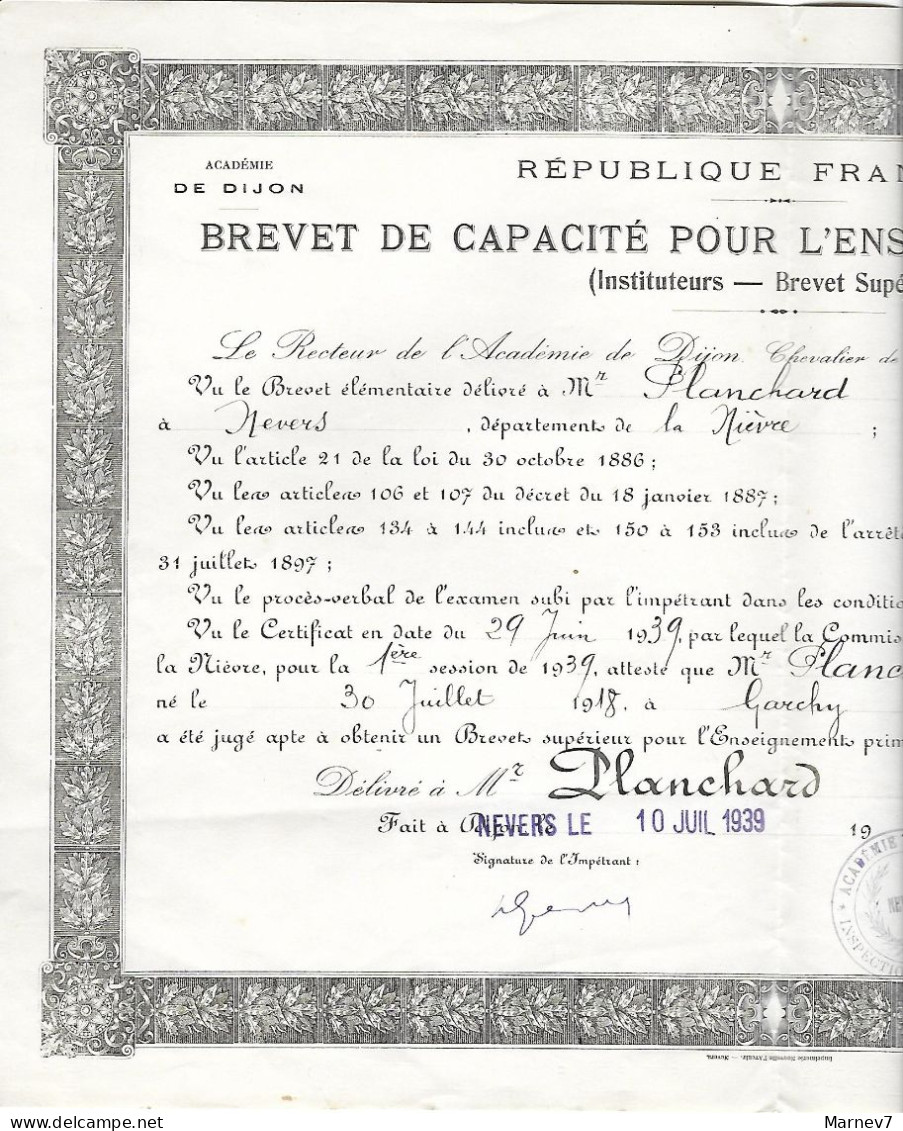 ACADÉMIE
DE DIJON
RÉPUBLIQUE FRAN
BREVET DE CAPACITÉ POUR L'ENS
(Instituteurs — Brevet Supé
Le Recteur de l'Académie de Dijon, Chevalier de
Vu le Brevet élémentaire délivré à Mr Planchard
à Nevers, département de la Nièvre ;
Vu l'article 21 de la loi du 30 octobre 1886 ;
Vu les articles 106 et 107 du décret du 18 janvier 1887 ;
Vu les articles 134 à 144 inclus et 150 à 153 inclus de l'arrêt
31 juillet 1897 ;
Vu le procès-verbal de l'examen subi par l'impétrant dans les conditio
Vu le Certificat en date du 29 Juin 1939, par lequel la Commis
la Nièvre, pour la 1ère session de 1939, atteste que Mr Planc
né le 30 Juillet 1918, à Garchy
a été jugé apte à obtenir un Brevet supérieur pour l'Enseignement prim
Délivré à Mr Planchard
Fait à Dijon, le NEVERS LE 10 JUIL 1939 19
Signature de l'Impétrant :
ACADÉMIE
INSPECTIO
Imprimerie Nouvelle l'Avenir. — Nevers.
Marnev7